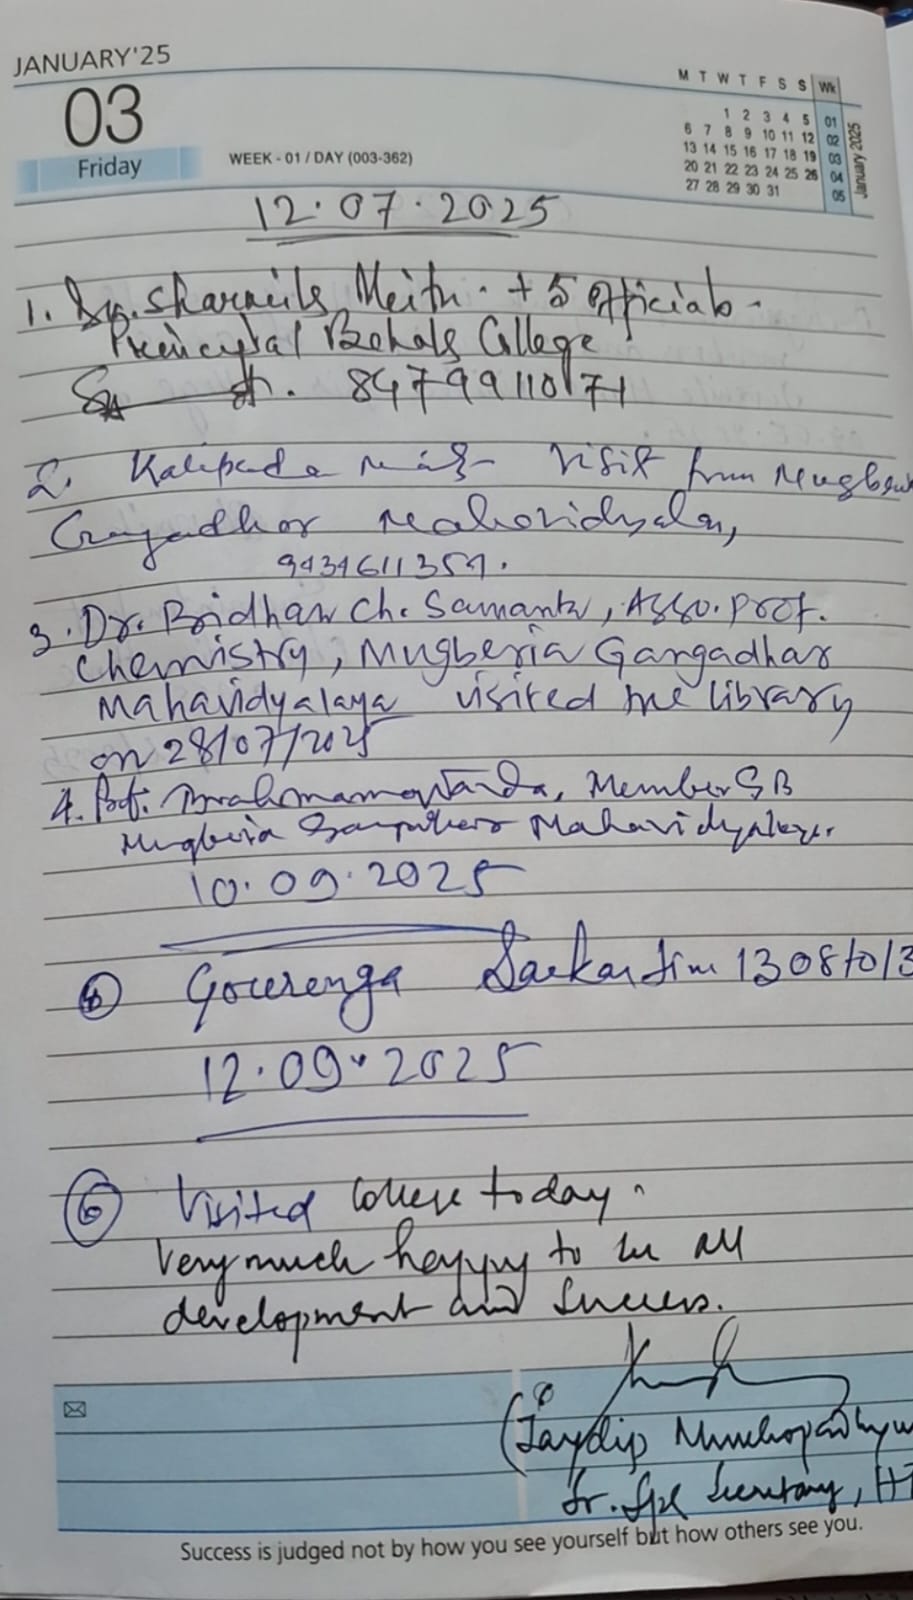 JANUARY'25
03
Friday
WEEK - 01 / DAY (003-362)
M T W T F S S Wk
1 2 3 4 5 01
6 7 8 9 10 11 12 02
13 14 15 16 17 18 19 03
20 21 22 23 24 25 26 04
27 28 29 30 31 05
January 2025
12.07.2025
1. Dr. Sharmila Meitu. + 5 officials -
Principal Behala College
8479911071
2. Kalipada visit from
Gangadhar Mahavidyalay,
9434611359.
3. Dr. Bidhan Ch. Samanta, Asso. Prof.
Chemistry, Mugberia Gangadhar
Mahavidyalaya visited the library
on 28/07/2025
4. Prof. Member GB
Mugberia Gangadhar Mahavidyalaya.
10.09.2025
5 Gourenga Sarkar
12.09.2025
6 Visited College today.
Very much happy to see all
development and success.
(Jaydip
Sr. Spl Secretary,
Success is judged not by how you see yourself but how others see you.